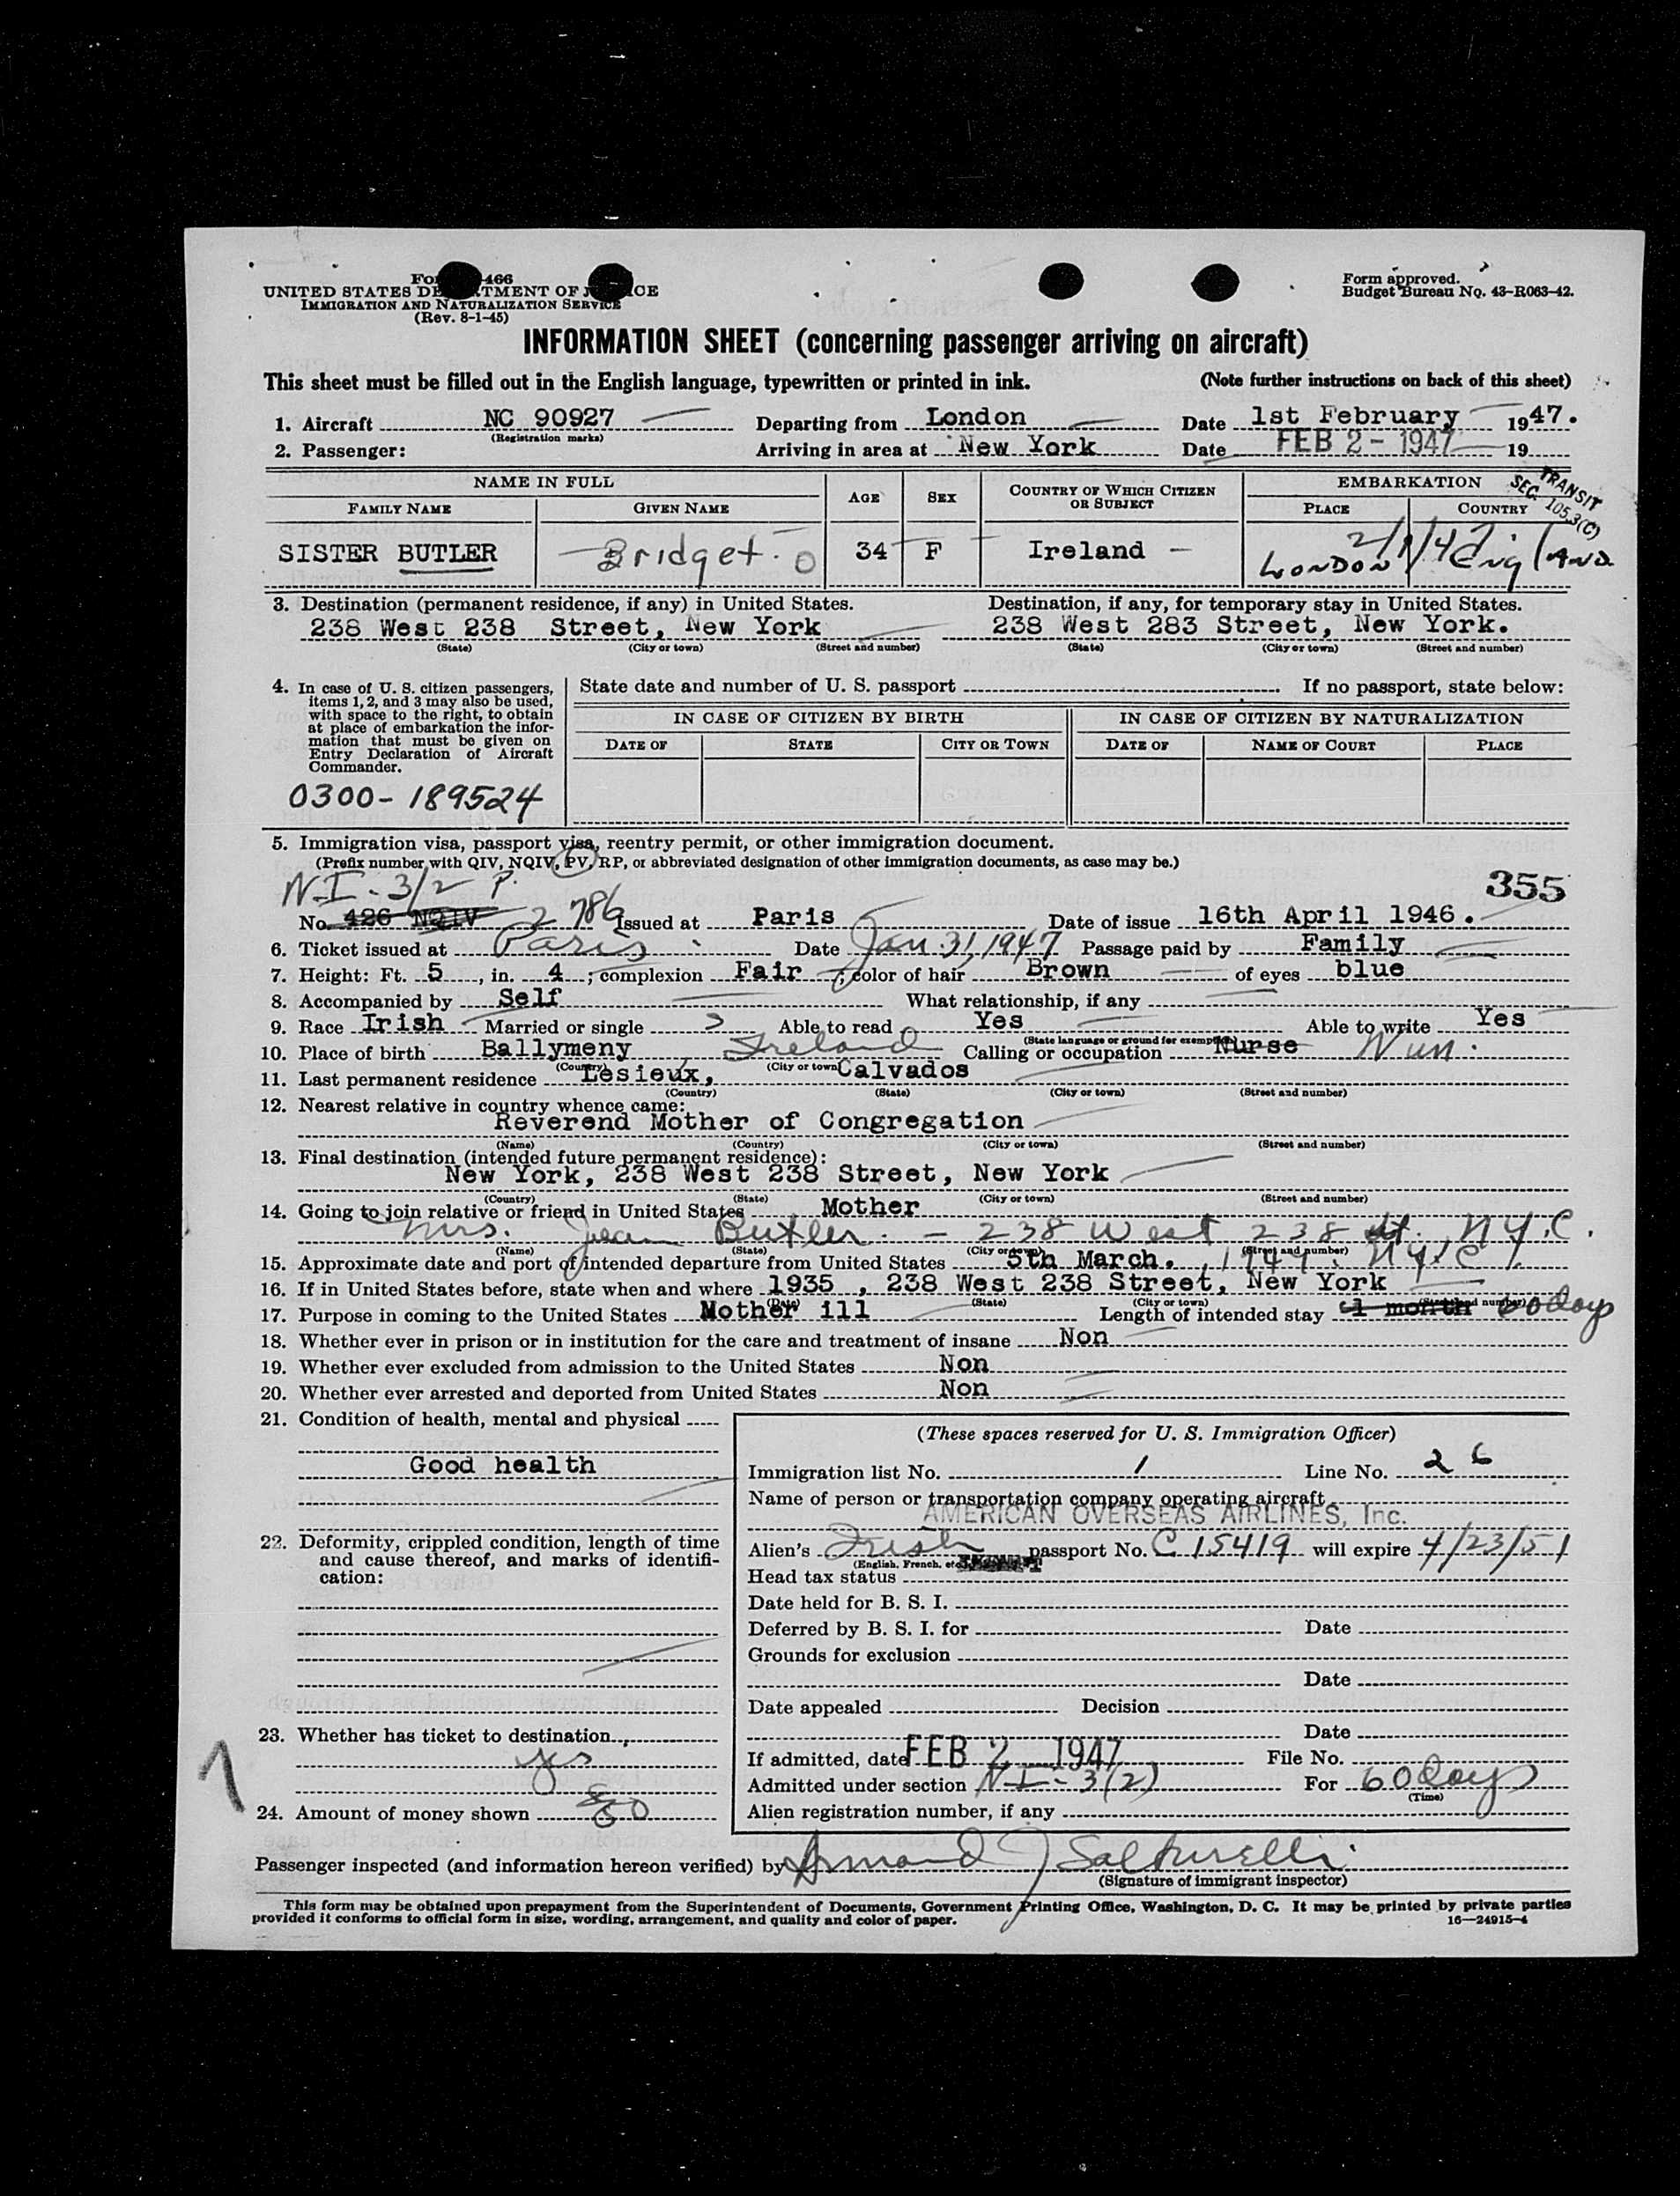 Fo 466
UNITED STATES DE TMENT OF J ICE
IMMIGRATION AND NATURALIZATION SERVICE
(Rev. 8-1-45)
Form approved.
Budget Bureau No. 43-R063-42.
INFORMATION SHEET (concerning passenger arriving on aircraft)
This sheet must be filled out in the English language, typewritten or printed in ink. (Note further instructions on back of this sheet)
1. Aircraft NC 90927 Departing from London Date 1st February 1947.
(Registration marks)
2. Passenger: Arriving in area at New York Date FEB 2 - 1947 19
TRANSIT
SEC. 105.3(C)
NAME IN FULL AGE SEX COUNTRY OF WHICH CITIZEN OR SUBJECT EMBARKATION
FAMILY NAME GIVEN NAME PLACE COUNTRY
2/1/47
SISTER BUTLER Bridget. 34 F Ireland LONDON England
3. Destination (permanent residence, if any) in United States. Destination, if any, for temporary stay in United States.
238 West 238 Street, New York 238 West 283 Street, New York.
(State) (City or town) (Street and number) (State) (City or town) (Street and number)
4. In case of U. S. citizen passengers, items 1, 2, and 3 may also be used, with space to the right, to obtain at place of embarkation the information that must be given on Entry Declaration of Aircraft Commander.
State date and number of U. S. passport If no passport, state below:
IN CASE OF CITIZEN BY BIRTH IN CASE OF CITIZEN BY NATURALIZATION
DATE OF STATE CITY OR TOWN DATE OF NAME OF COURT PLACE
0300-189524
5. Immigration visa, passport visa, reentry permit, or other immigration document.
(Prefix number with QIV, NQIV, PV, RP, or abbreviated designation of other immigration documents, as case may be.)
355
N.I - 3/2 P.
No. 426 NQIV 2786 Issued at Paris Date of issue 16th April 1946.
6. Ticket issued at Paris Date Jan. 31, 1947 Passage paid by Family
7. Height: Ft. 5, in. 4; complexion Fair; color of hair Brown of eyes blue
8. Accompanied by Self What relationship, if any
9. Race Irish Married or single S Able to read Yes Able to write Yes
(State language or ground for exemption)
10. Place of birth Ballymeny Ireland Calling or occupation Nurse Nun.
(Country) (City or town)
11. Last permanent residence Lesieux, Calvados
(Country) (State) (City or town) (Street and number)
12. Nearest relative in country whence came:
Reverend Mother of Congregation
(Name) (Country) (City or town) (Street and number)
13. Final destination (intended future permanent residence):
New York, 238 West 238 Street, New York
(Country) (State) (City or town) (Street and number)
14. Going to join relative or friend in United States Mother
Mrs. Jean Butler. - 238 West 238 St. N.Y.C.
(Name) (State) (City or town) (Street and number)
15. Approximate date and port of intended departure from United States 5th March. 1947. N.Y.C.
16. If in United States before, state when and where 1935, 238 West 238 Street, New York
(Date) (State) (City or town) (Street and number)
17. Purpose in coming to the United States Mother ill Length of intended stay 1 month 60 days
18. Whether ever in prison or in institution for the care and treatment of insane Non
19. Whether ever excluded from admission to the United States Non
20. Whether ever arrested and deported from United States Non
21. Condition of health, mental and physical
Good health
22. Deformity, crippled condition, length of time and cause thereof, and marks of identification:
23. Whether has ticket to destination
yes
24. Amount of money shown
(These spaces reserved for U. S. Immigration Officer)
Immigration list No. 1 Line No. 26
Name of person or transportation company operating aircraft
AMERICAN OVERSEAS AIRLINES, Inc.
Alien's Irish passport No. C 15419 will expire 4/23/51
(English, French, etc.)
Head tax status
Date held for B. S. I.
Deferred by B. S. I. for Date
Grounds for exclusion
Date
Date appealed Decision
Date
If admitted, date FEB 2 1947 File No.
Admitted under section N.I - 3(2) For 60 days
(Time)
Alien registration number, if any
Passenger inspected (and information hereon verified) by Armand J
(Signature of immigrant inspector)
This form may be obtained upon prepayment from the Superintendent of Documents, Government Printing Office, Washington, D. C. It may be printed by private parties
provided it conforms to official form in size, wording, arrangement, and quality and color of paper. 16—24915-4